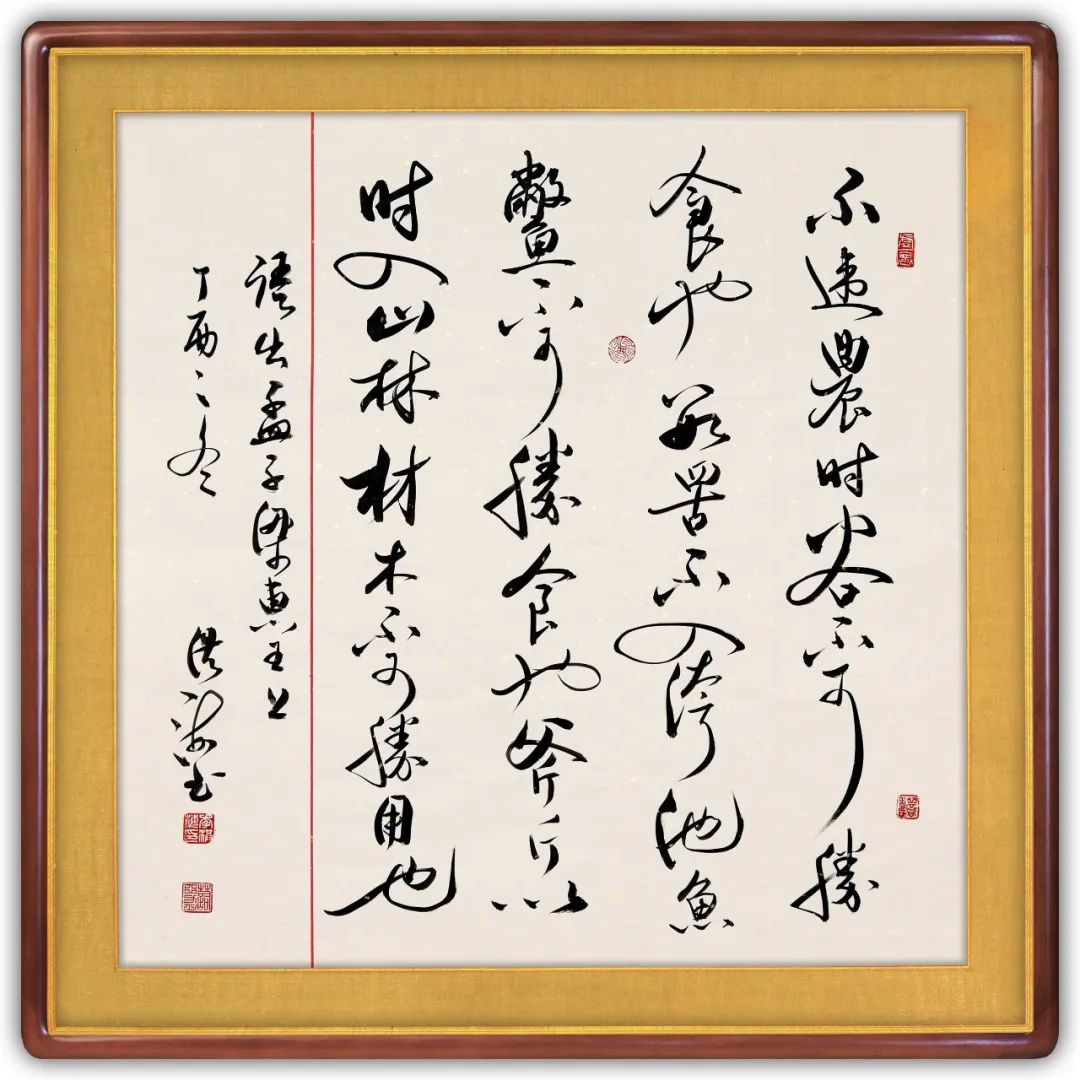 不違農时谷不可勝
食也数罟不入洿池魚
鱉不可勝食也斧斤以
时入山林材木不可勝用也
語出孟子梁惠王上
丁酉之冬 洪海书